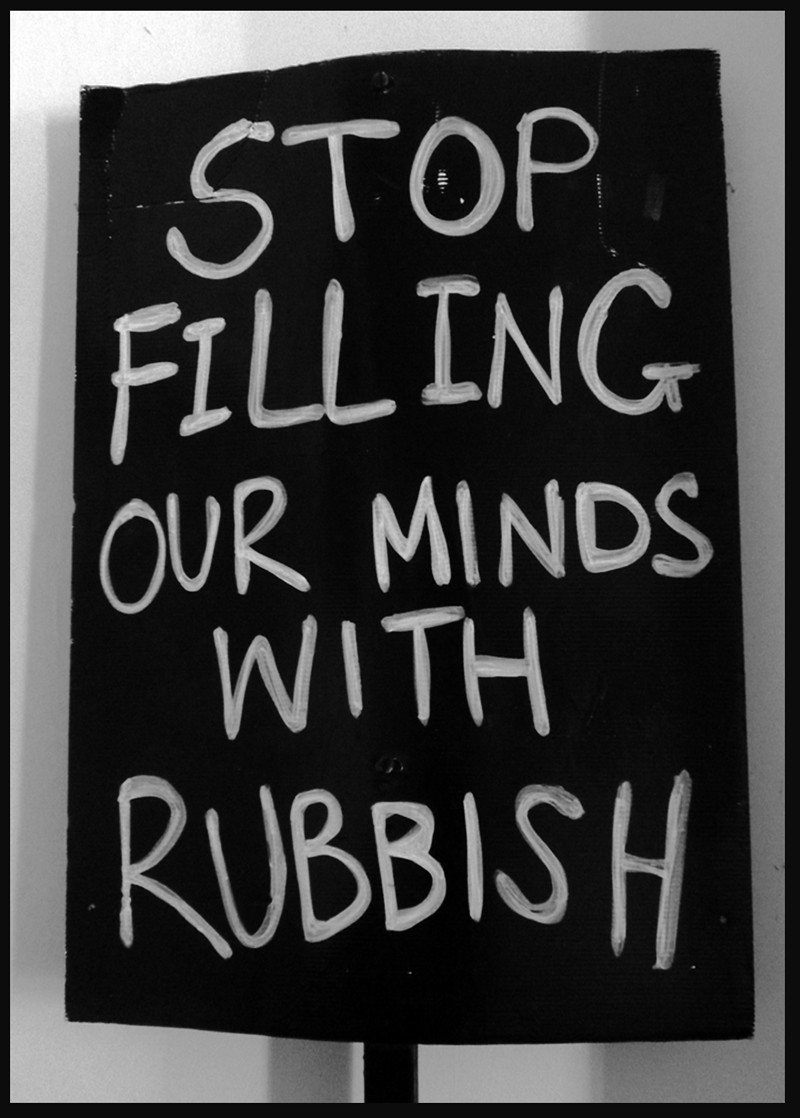 STOP
FILLING
OUR MINDS
WITH
RUBBISH